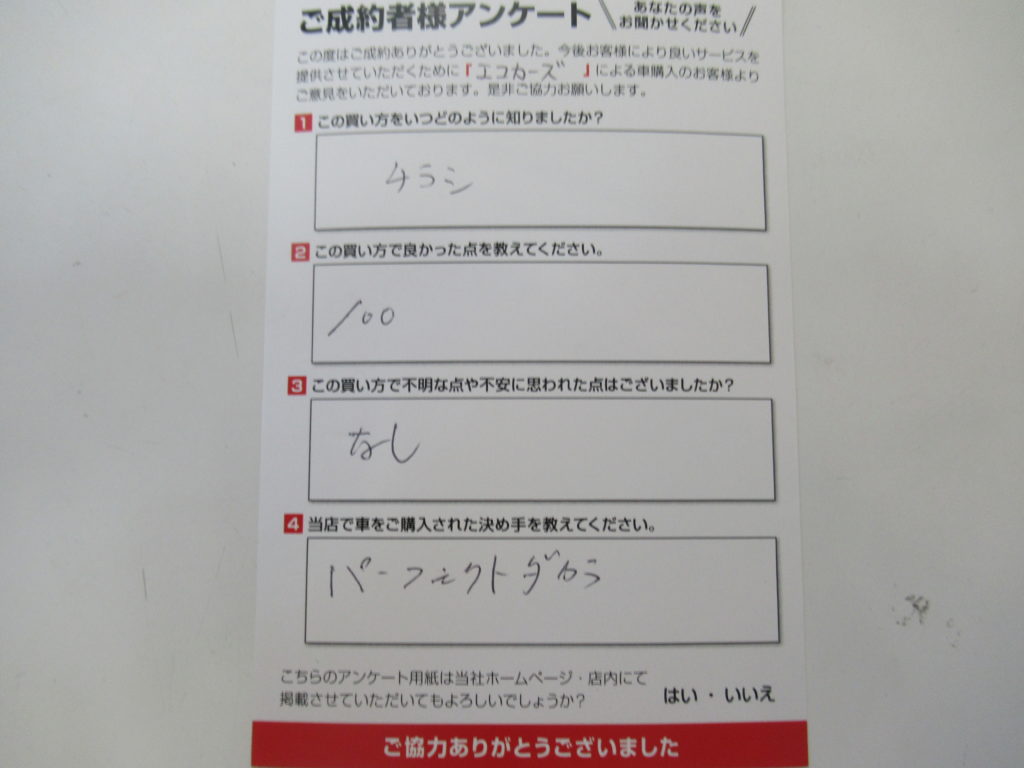 ご成約者様アンケート
あなたの声を
お聞かせください
この度はご成約ありがとうございました。今後お客様により良いサービスを
提供させていただくために『エコカーズ』による車購入のお客様より
ご意見をいただいております。是非ご協力お願いします。
1 この買い方をいつどのように知りましたか?
チラシ
2 この買い方で良かった点を教えてください。
100
3 この買い方で不明な点や不安に思われた点はございましたか?
なし
4 当店で車をご購入された決め手を教えてください。
パーフェクトダから
こちらのアンケート用紙は当社ホームページ・店内にて
掲載させていただいてもよろしいでしょうか?
はい・いいえ
ご協力ありがとうございました